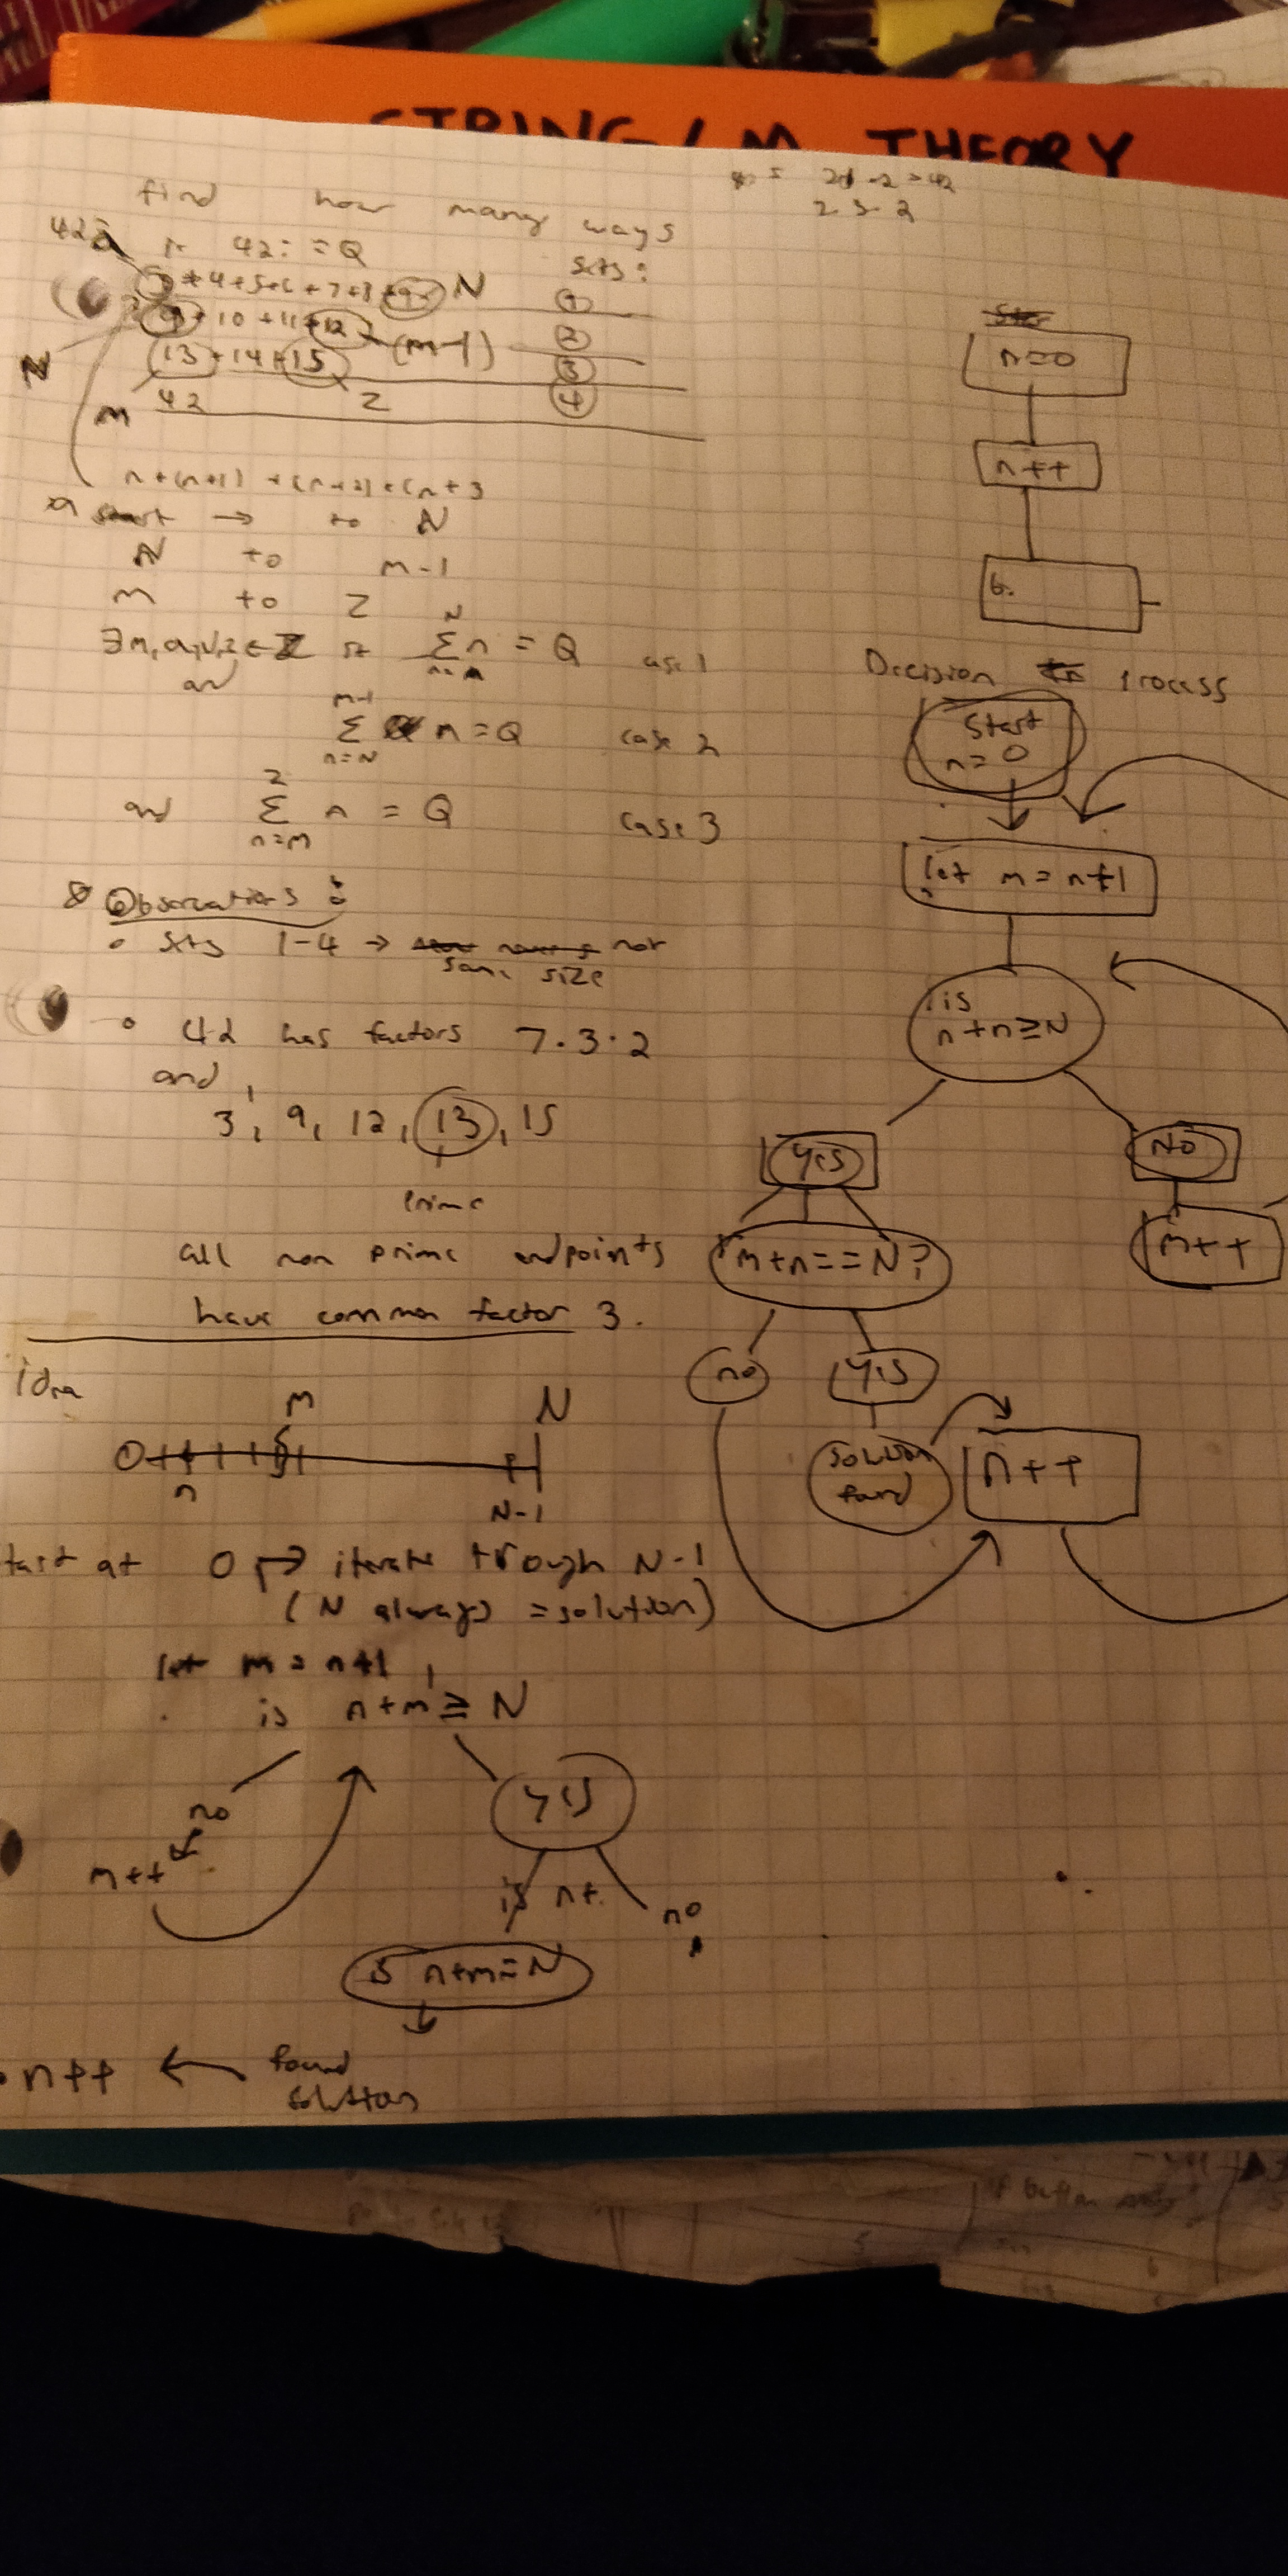 STRING / M THEORY
find how many ways
42: = Q
sets:
3+4+5+6+7+8+9 N ①
9+10+11+12 (m-1) ②
13+14+15 ③
m 42 Z ④
n+(n+1) +(n+2)+(n+3
a start → to N
N to m-1
m to Z
∃m,a,N,z∈Z st Σ n = Q case 1
and
m-1
Σ n = Q case 2
n=N
Z
and Σ n = Q case 3
n=m
Observations:
• sets 1-4 → not
same size
• 42 has factors 7·3·2
and
3, 9, 12, 13, 15
prime
all non prime endpoints
have common factor 3.
idea
m N
0
n N-1
start at 0 → iterate trough N-1
(N always = solution)
let m = n+1
is n+m ≥ N
no yis
m++ is n+. no
is n+m=N
n++ ← found
solution
n=0
n++
6.
Decision Process
Start
n=0
let m = n+1
is
n+n≥N
yis No
m+n==N? m++
no yis
solution
found
n++